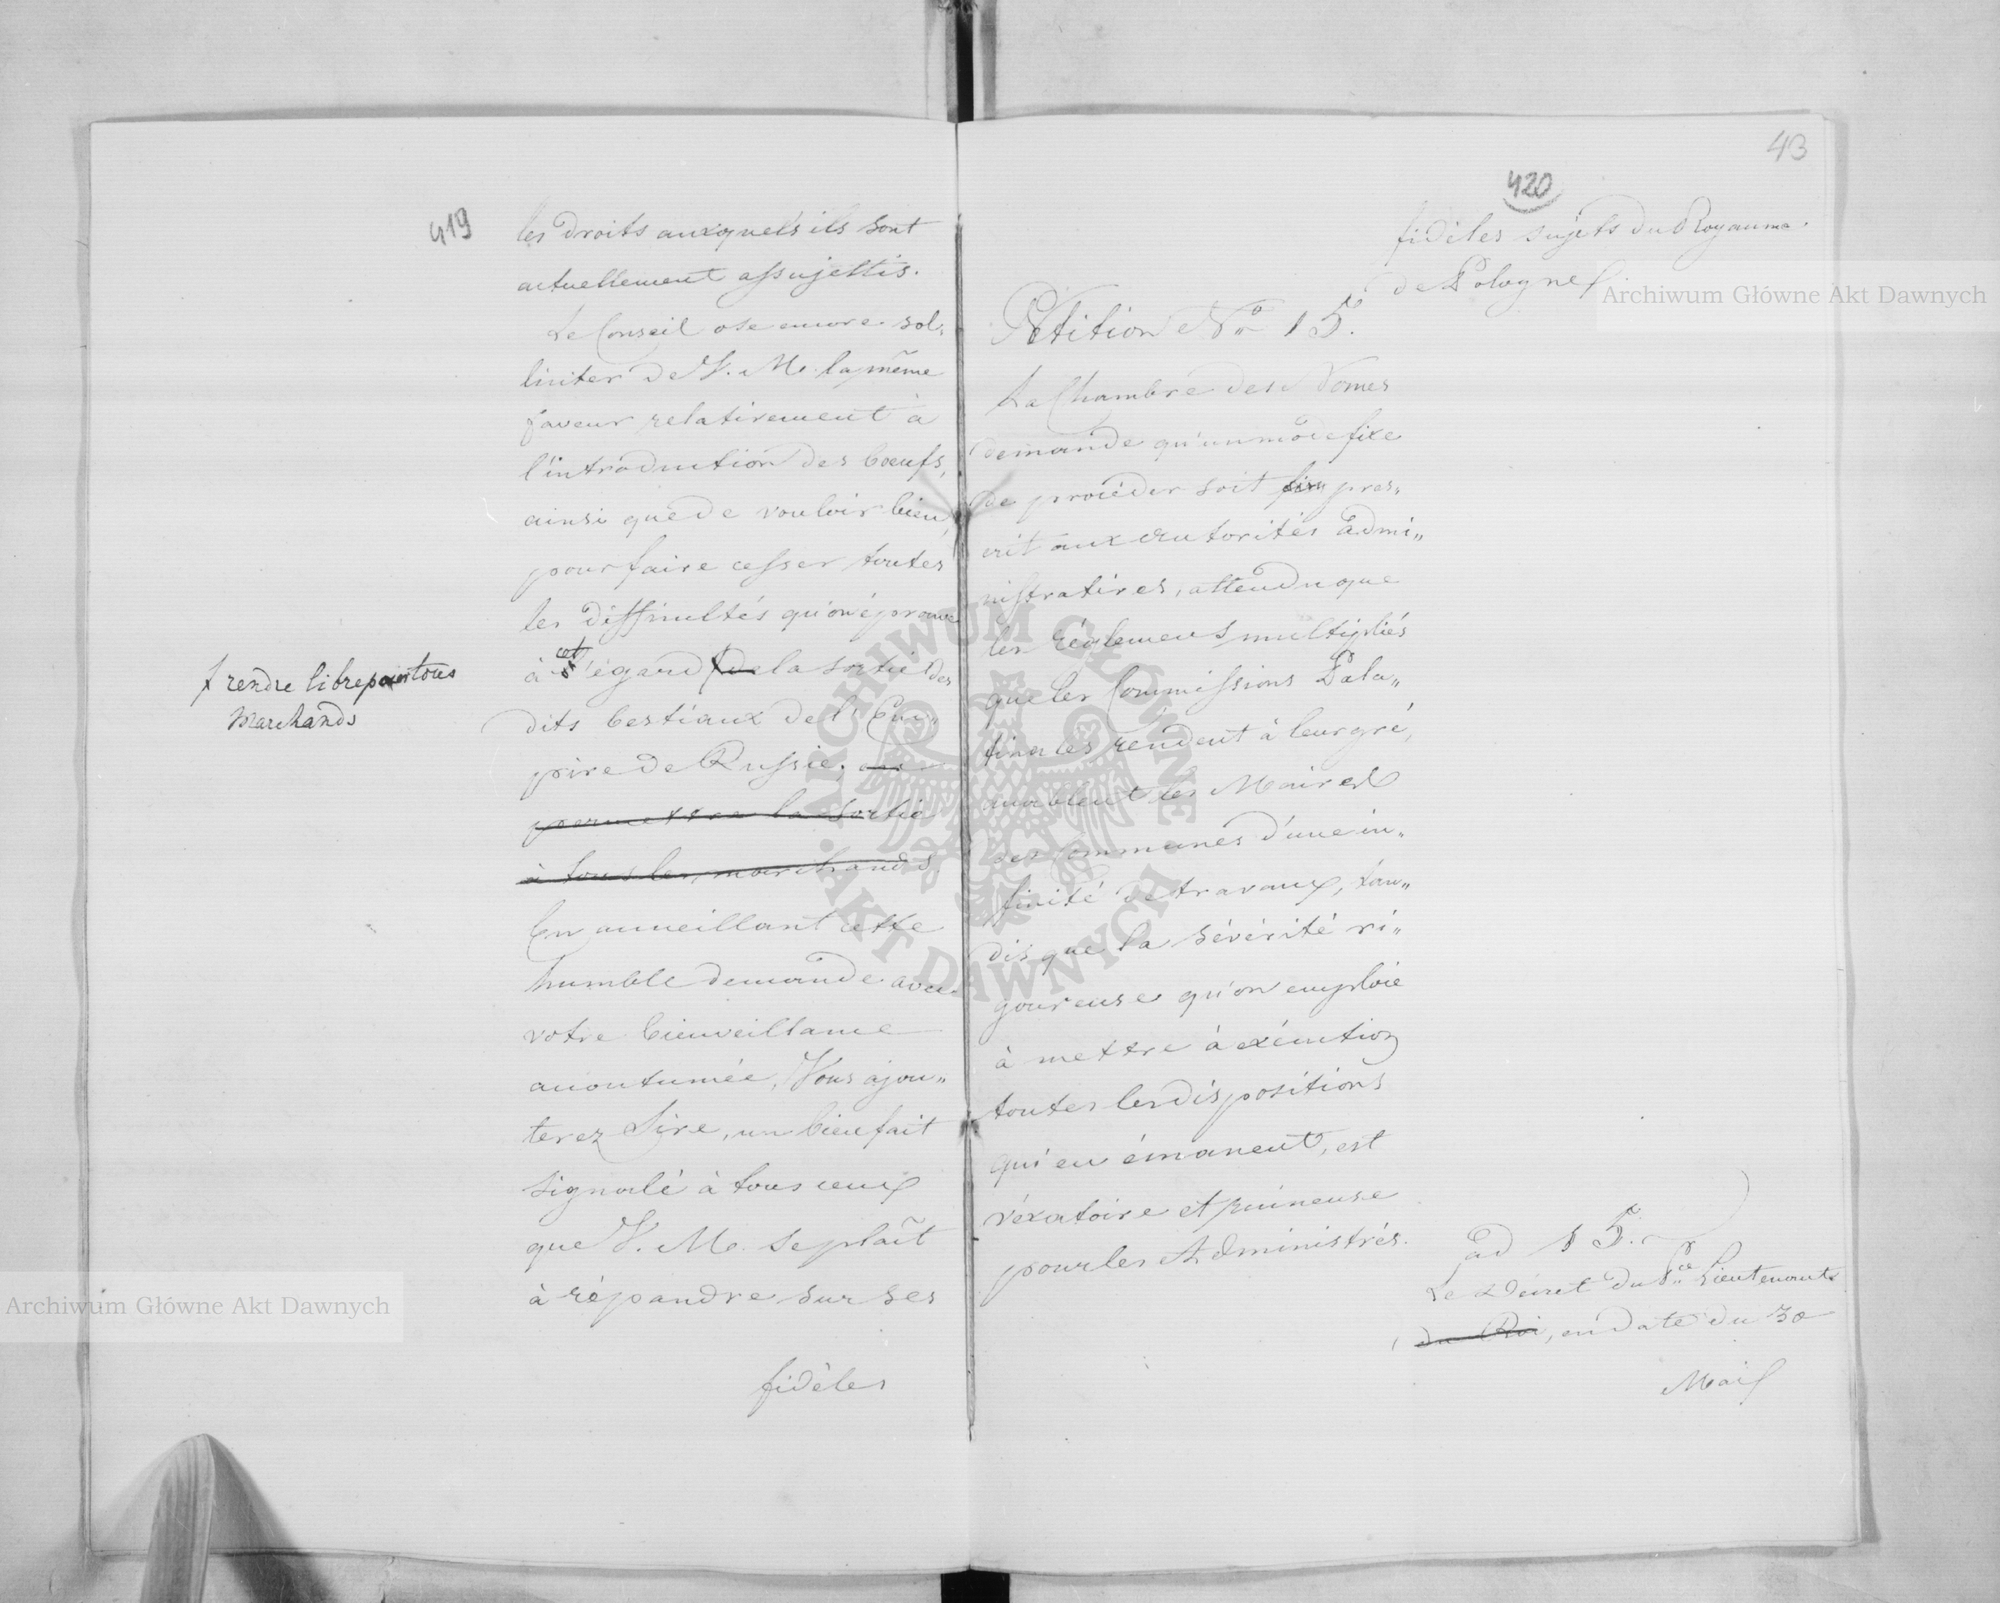 419
les droits auxquels ils sont
actuellement assujettis.
Le Conseil ose encore sol-
liciter de V. M. la même
faveur relativement à
l'introduction des boeufs,
ainsi que de vouloir bien,
pour faire cesser toutes
les difficultés qu'on éprouve
à cet égard de la sortie des
dits bestiaux de l'Em-
pire de Russie, ou
permettre la sortie
à tous les marchands.
En accueillant cette
humble demande avec
votre bienveillance
accoutumée, Vous ajou-
terez Sire, un bienfait
signalé à tous ceux
que V. M. se plaît
à répandre sur ses
fidèles
rendre libre pour tous
Marchands
43
420
fidèles sujets du Royaume
de Pologne
Pétition No 15.
La Chambre des Nonces
demande qu'un mode fixe
de procéder soit pres-
crit aux autorités admi-
nistratives, attendu que
les réglemens multipliés
que les Commissions Pala-
tinales rendent à leur gré,
accablent les Maires
des Communes d'une in-
finité de travaux, tan-
dis que la sévérité ri-
goureuse qu'on emploie
à mettre à exécution
toutes les dispositions
qui en émanent, est
véxatoire et ruineuse
pour les Administrés.
ad 15.
Le Décret du Pce Lieutenant
du Roi, en date du 30
Mai
Archiwum Główne Akt Dawnych
Archiwum Główne Akt Dawnych
ARCHIWUM GŁÓWNE AKT DAWNYCH